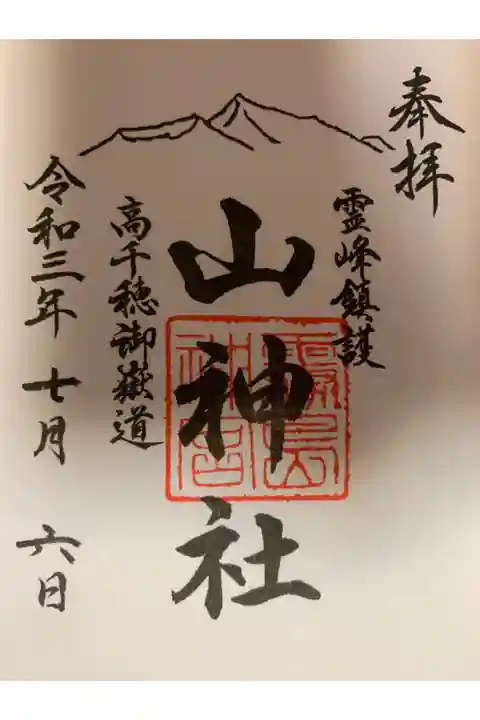 奉拝
霊峰鎮護
山神社
霧島神宮
高千穂御嶽道
令和三年七月六日